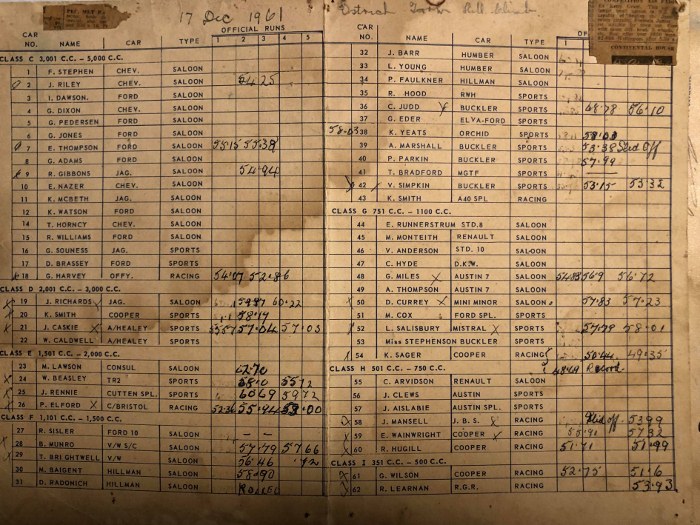 17 Dec 1961
OFFICIAL RUNS
CAR NO. NAME CAR TYPE 1 2 3 4 5
CLASS C 3,001 C.C. – 5,000 C.C.
1 F. STEPHEN CHEV. SALOON
2 J. RILEY CHEV. SALOON 54.25
3 I. DAWSON. FORD SALOON
4 G. DIXON CHEV. SALOON
5 G. PEDERSEN FORD SALOON
6 G. JONES FORD SALOON
7 E. THOMPSON FORD SALOON 55.15 55.38
8 G. ADAMS FORD SALOON
9 R. GIBBONS JAG. SALOON 54.94
10 E. NAZER CHEV. SALOON
11 K. McBETH JAG. SALOON
12 K. WATSON FORD SALOON
14 T. HORNCY CHEV. SALOON
15 R. WILLIAMS FORD SALOON
16 G. SOUNESS JAG. SPORTS
17 D. BRASSEY FORD SPORTS
18 G. HARVEY OFFY. RACING 54.07 52.86
CLASS D 2,001 C.C. – 3,000 C.C.
19 J. RICHARDS JAG. SALOON 60.22
20 K. SMITH COOPER SPORTS 58.19
21 J. CASKIE A/HEALEY SPORTS 57.04 57.03
22 W. CALDWELL A/HEALEY SPORTS
CLASS E 1,501 C.C. – 2,000 C.C.
23 M. LAWSON CONSUL SALOON 62.70
24 W. BEASLEY TR2 SPORTS 58.0 55.12
25 J. RENNIE CUTTEN SPL. SPORTS 60.69 59.72
26 P. ELFORD C/BRISTOL RACING 52.36 55.94 53.00
CLASS F 1,101 C.C. – 1,500 C.C.
27 R. SISLER FORD 10 SALOON — —
28 B. MUNRO V/W S/C SALOON 57.79 57.66
29 T. BRIGHTWELL V/W SALOON 56.46
30 M. BAIGENT HILLMAN SALOON 58.90
31 D. RADONICH HILLMAN SALOON ROLLED
CAR NO. NAME CAR TYPE
32 J. BARR HUMBER SALOON
33 L. YOUNG HUMBER SALOON
34 P. FAULKNER HILLMAN SALOON
35 R. HOOD RWH SPORTS
36 C. JUDD BUCKLER SPORTS 68.78 56.10
37 G. EDER ELVA-FORD SPORTS
58.03 38 K. YEATS ORCHID SPORTS 58.03
39 A. MARSHALL BUCKLER SPORTS 55.38 Slid Off
40 P. PARKIN BUCKLER SPORTS 57.99
41 T. BRADFORD MGTF SPORTS
42 V. SIMPKIN BUCKLER SPORTS 53.15 53.32
43 K. SMITH A40 SPL RACING
CLASS G 751 C.C. – 1100 C.C.
44 E. RUNNERSTRUM STD.8 SALOON
45 M. MONTEITH RENAULT SALOON
46 V. ANDERSON STD. 10 SALOON
47 C. HYDE D.K.W. SALOON
48 G. MILES AUSTIN 7 SALOON 56.9 56.72
49 A. THOMPSON AUSTIN 7 SALOON
50 D. CURREY MINI MINOR SALOON 57.83 57.23
51 M. COX FORD SPL. SPORTS
52 L. SALISBURY MISTRAL SPORTS 57.78 58.01
53 Miss STEPHENSON BUCKLER SPORTS
54 K. SAGER COOPER RACING 50.44 49.35
CLASS H 501 C.C. – 750 C.C. 48.49 Record
55 C. ARVIDSON RENAULT SALOON
56 J. CLEWS AUSTIN SPORTS
57 J. AISLABIE AUSTIN SPL. SPORTS
58 J. MANSELL J. B. S. RACING Slid off 53.99
59 E. WAINWRIGHT COOPER RACING 55.90 57.32
60 R. HUGILL COOPER RACING 51.71 51.99
CLASS I 351 C.C. – 500 C.C.
61 G. WILSON COOPER RACING 52.75 51.6
62 R. LEARNAN R.G.R. RACING 53.93